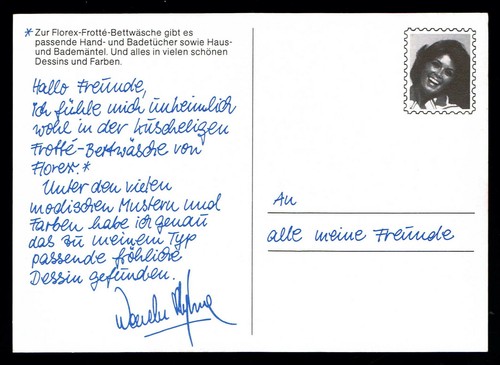 * Zur Florex-Frotté-Bettwäsche gibt es
passende Hand- und Badetücher sowie Haus-
und Bademäntel. Und alles in vielen schönen
Dessins und Farben.
Hallo Freunde,
ich fühle mich unheimlich
wohl in der kuscheligen
Frotté-Bettwäsche von
Florex.*
Unter den vielen
modischen Mustern und
Farben habe ich genau
das zu meinem Typ
passende fröhliche
Dessin gefunden.
An
alle meine Freunde